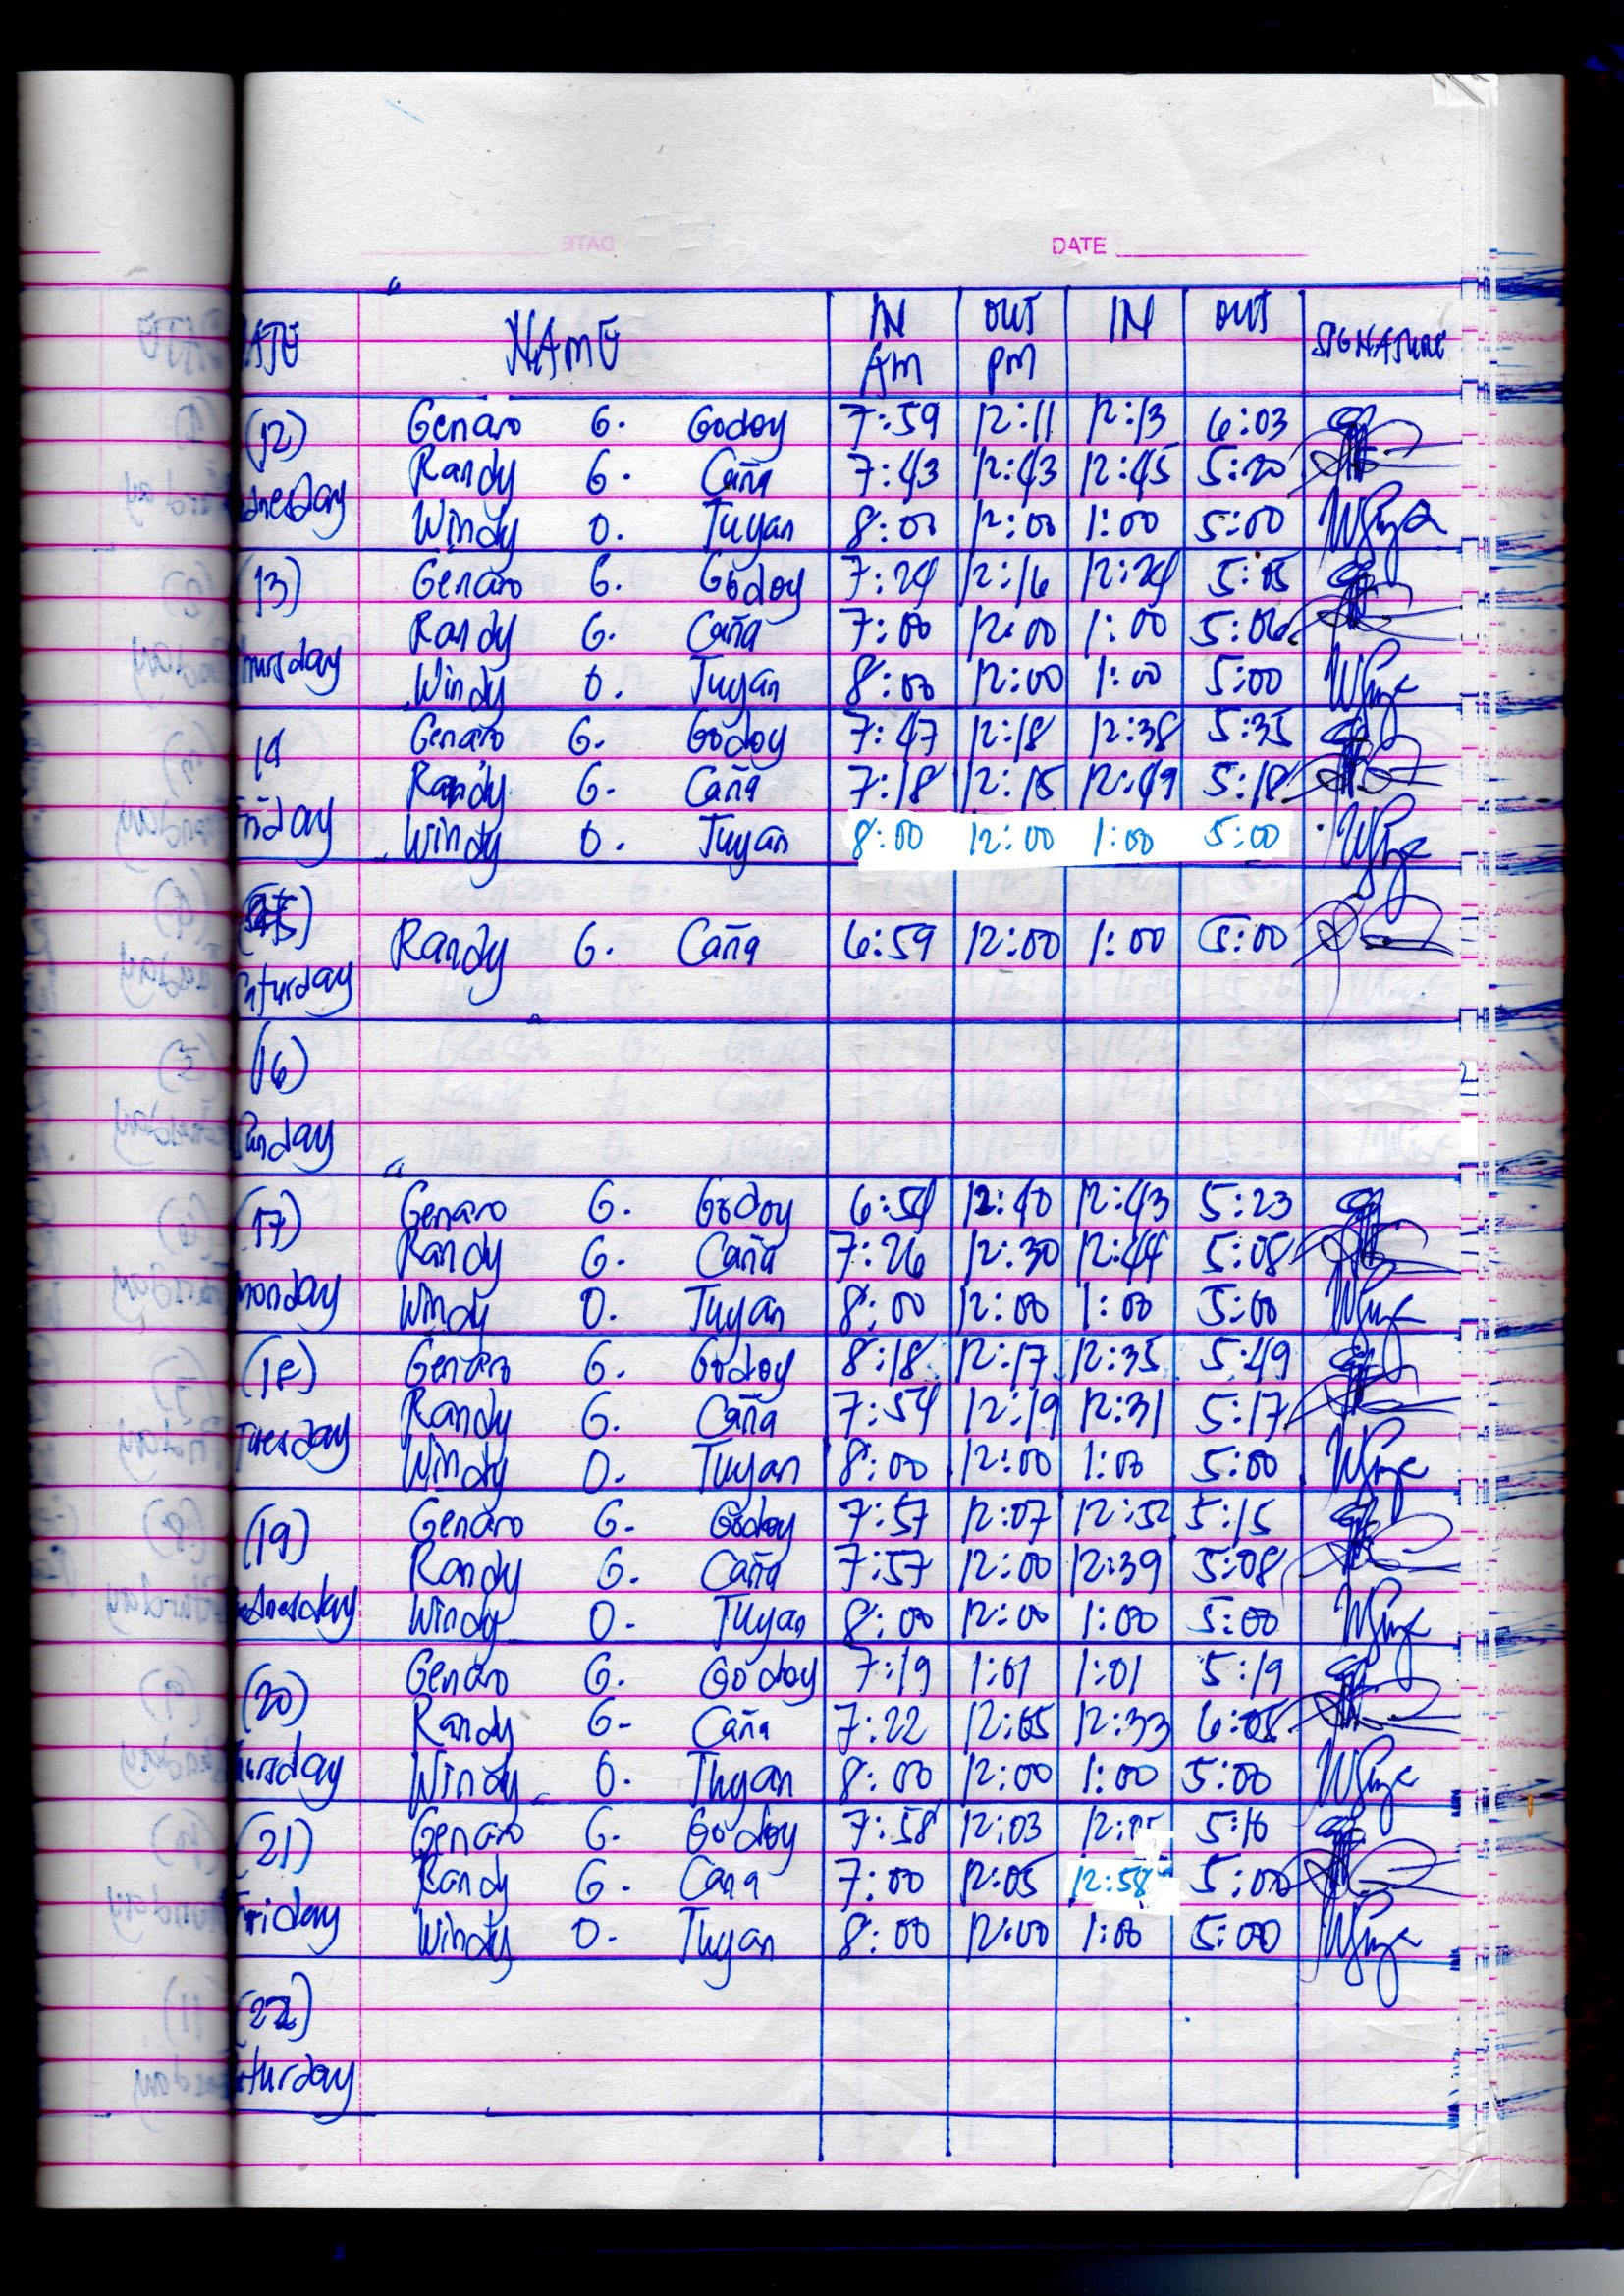 DATE
DATE NAME IN AM OUT PM IN OUT SIGNATURE
(12) Genaro G. Godoy 7:59 12:11 12:13 6:03
Randy G. Caña 7:43 12:43 12:45 5:20
Windy O. Tuyan 8:00 12:00 1:00 5:00
(13) Genaro G. Godoy 7:24 12:16 12:24
Thursday Randy G. Caña 7:00 12:00 1:00 5:06
Windy O. Tuyan 8:00 12:00 1:00 5:00
14 Genaro G. Godoy 7:47 12:18 12:38 5:35
Randy G. Caña 7:18 12:15 12:49 5:18
Friday Windy O. Tuyan 8:00 12:00 1:00 5:00
Randy G. Caña 6:59 12:00 1:00 5:00
Saturday
(16)
Sunday
(17) Genaro G. Godoy 6:54 12:40 12:43 5:23
Randy G. Caña 7:26 12:30 12:44 5:08
Monday Windy O. Tuyan 8:00 12:00 1:00 5:00
(18) Genaro G. Godoy 8:18 12:17 12:35 5:49
Randy G. Caña 7:54 12:19 12:31 5:17
Tuesday Windy O. Tuyan 8:00 12:00 1:00 5:00
(19) Genaro G. Godoy 7:57 12:07 12:52 5:15
Randy G. Caña 7:57 12:00 12:39 5:08
Wednesday Windy O. Tuyan 8:00 12:00 1:00 5:00
(20) Genaro G. Godoy 7:19 1:01 1:01 5:19
Randy G- Caña 7:22 12:05 12:33 6:05
Thursday Windy O. Tuyan 8:00 12:00 1:00 5:00
(21) Genaro G. Godoy 7:58 12:03 5:10
Randy G. Cana 7:00 12:05 12:58 5:00
Friday Windy O. Tuyan 8:00 12:00 1:00 5:00
(22)
Saturday